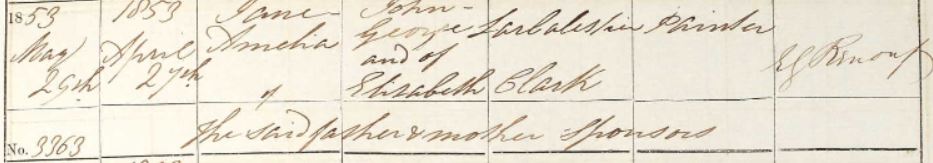 1853 1853 Jane- John-
May April Amelia George Larbalestier Painter
29th 27th and of E G Renouf
of Elizabeth Clark
No. 3363 the said father & mother sponsors